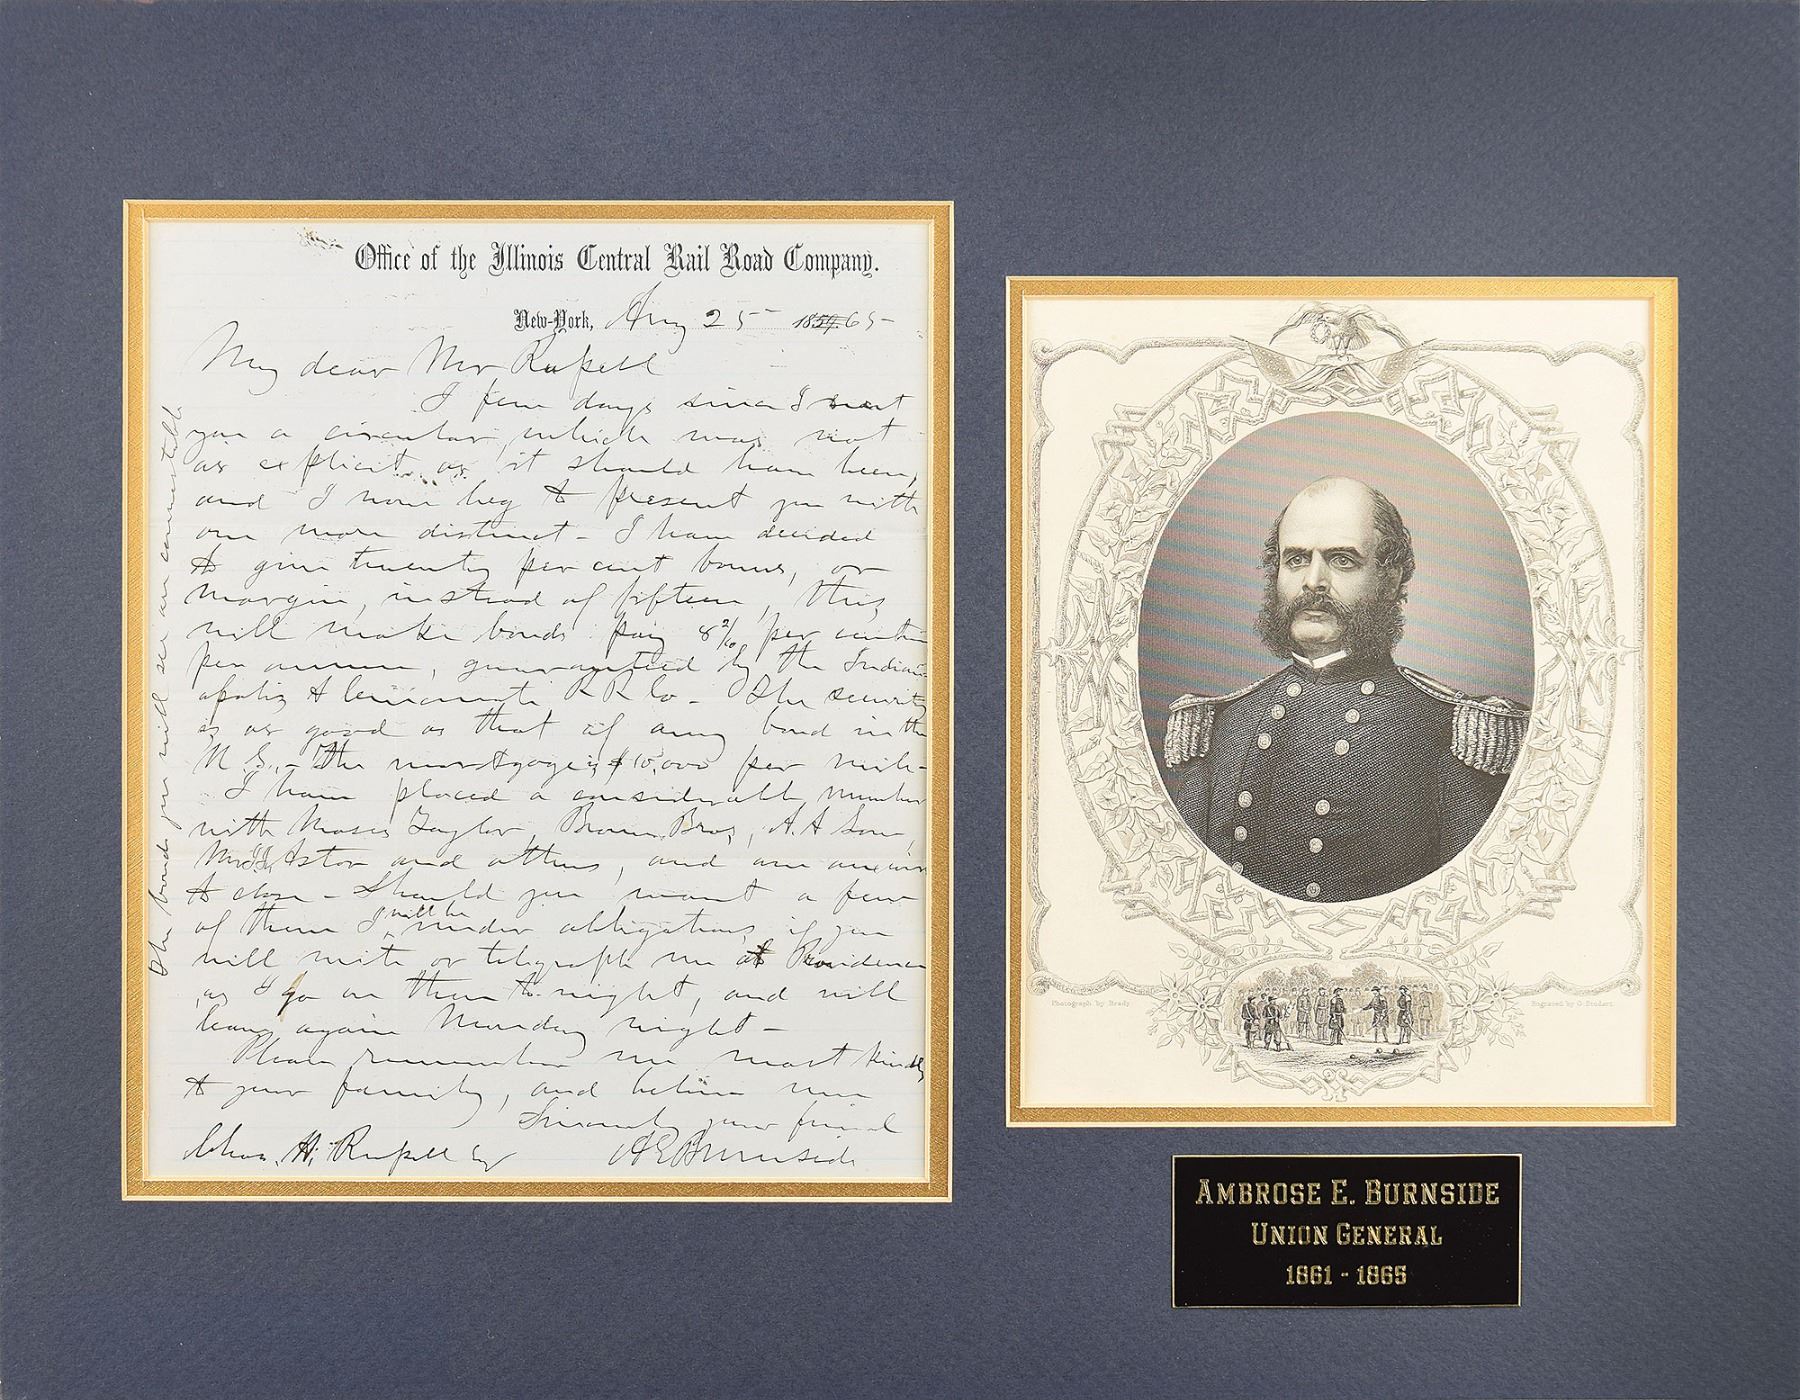 Office of the Illinois Central Rail Road Company.
New-York, Aug 25 1859. 65
My dear Mr Russell
A few days since I sent
you a circular, which was not
as explicit as it should have been,
and I now beg to present you with
one more distinct - I have decided
to give twenty per cent bonus, or
margin, instead of fifteen, this
will make bonds pay 8 2/10 per cent
per annum, guaranteed by the Indian-
apolis & Cincinnati R R Co - The security
is as good as that of any bond in the
U.S. - The mortgage is $10,000 per mile -
I have placed a considerable number
with Moses Taylor, Brown Bros, A. A Low
Mr J.J. Astor and others, and am anxious
to close - Should you want a few
of them I will be under obligations if you
will write or telegraph me at Providence
as I go on there to-night, and will
leave again Monday night -
Please remember me most kindly
to your family, and believe me
Sincerely your friend
Chas. H. Russell Esq A E Burnside
The bonds you will see are convertible
Photograph by Brady
Engraved by G. Stodart
AMBROSE E. BURNSIDE
UNION GENERAL
1861 - 1865